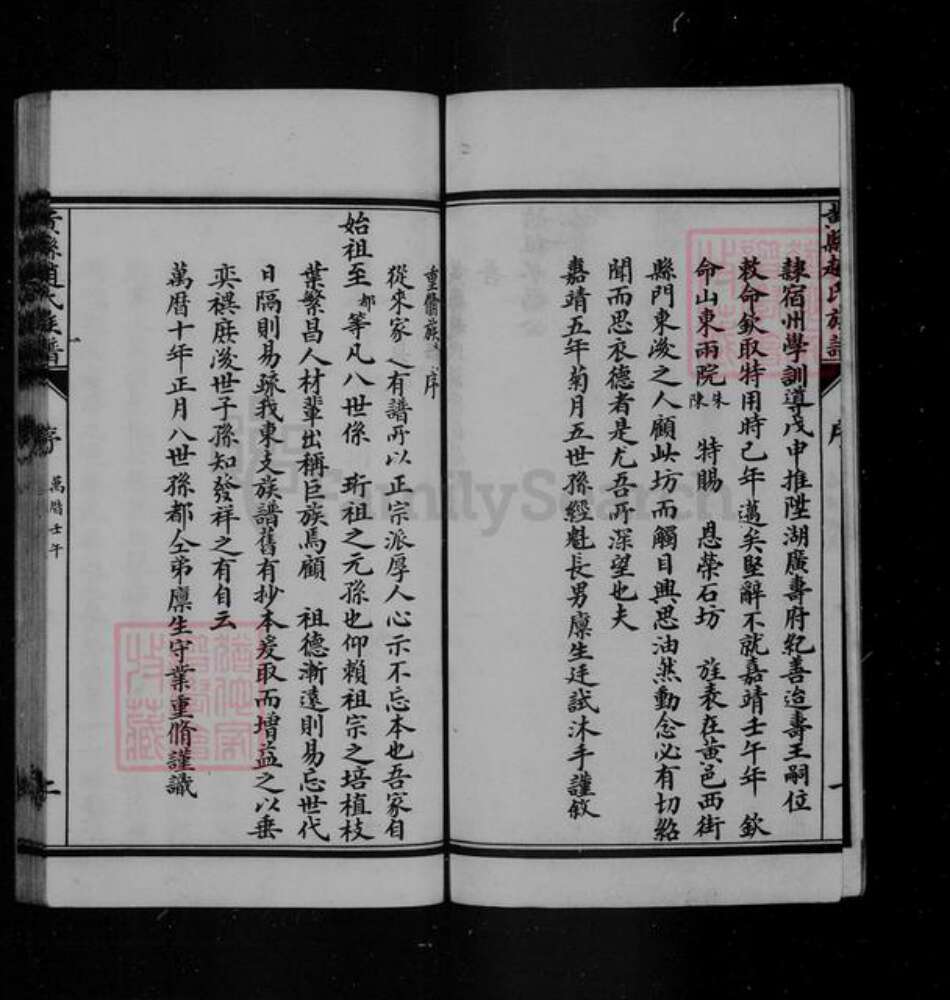 黃縣趙氏族譜 序 一
隸宿州學訓導戊申推陞湖廣壽府紀善迨壽王嗣位
敕命欽取特用時己年邁矣堅辭不就嘉靖壬午年 欽
命山東兩院朱陳 特賜 恩榮石坊 旌表在黃邑西街
縣門東後之人顧此坊而觸目興思油然動念必有切紹
聞而思衣德者是尤吾所深望也夫
嘉靖五年菊月五世孫經魁長男廩生廷試沐手謹敘
重脩族譜序
從來家之有譜所以正宗派厚人心示不忘本也吾家自
始祖至都等凡八世係 珩祖之元孫也仰賴祖宗之培植枝
葉繁昌人材輩出稱巨族焉顧 祖德漸遠則易忘世代
日隔則易疏我東支族譜舊有抄本爰取而增益之以垂
奕禩庶後世子孫知發祥之有自云
萬曆十年正月八世孫都仝弟廩生守業重脩謹識
黃縣趙氏族譜 序 萬曆壬午 二
FamilySearch